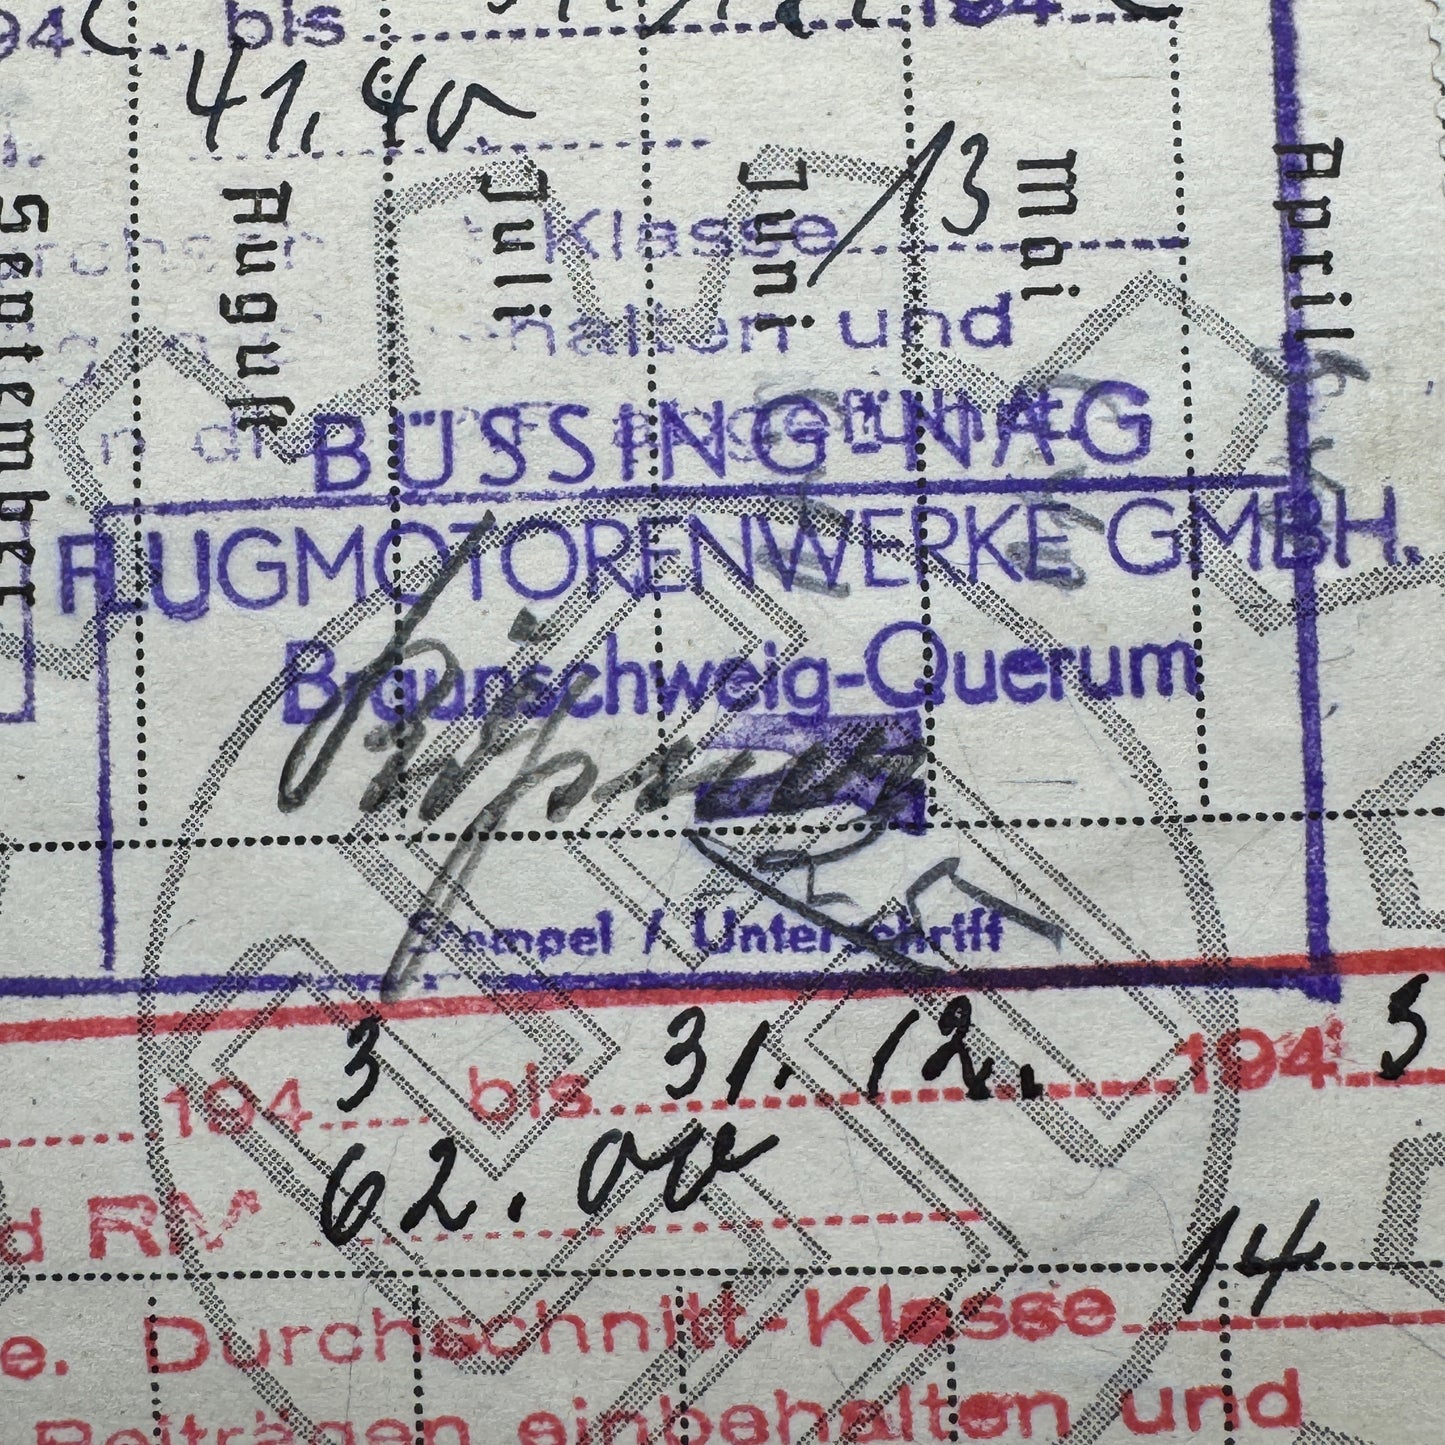 194 bis 194
41,40
April
Mai
Juni
Juli
August
September
Klasse 13
halten und
BÜSSING-NAG
FLUGMOTORENWERKE GMBH.
Braunschweig-Querum
Stempel / Unterschrift
1943 bis 31. 12. 1943
RM 62.00
e. Durchschnitt-Klasse 14
Beiträgen einbehalten und